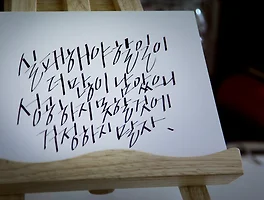 실패해야할일이
더 많이 남았으니
성공하지 못할것에
걱정하지 말자.